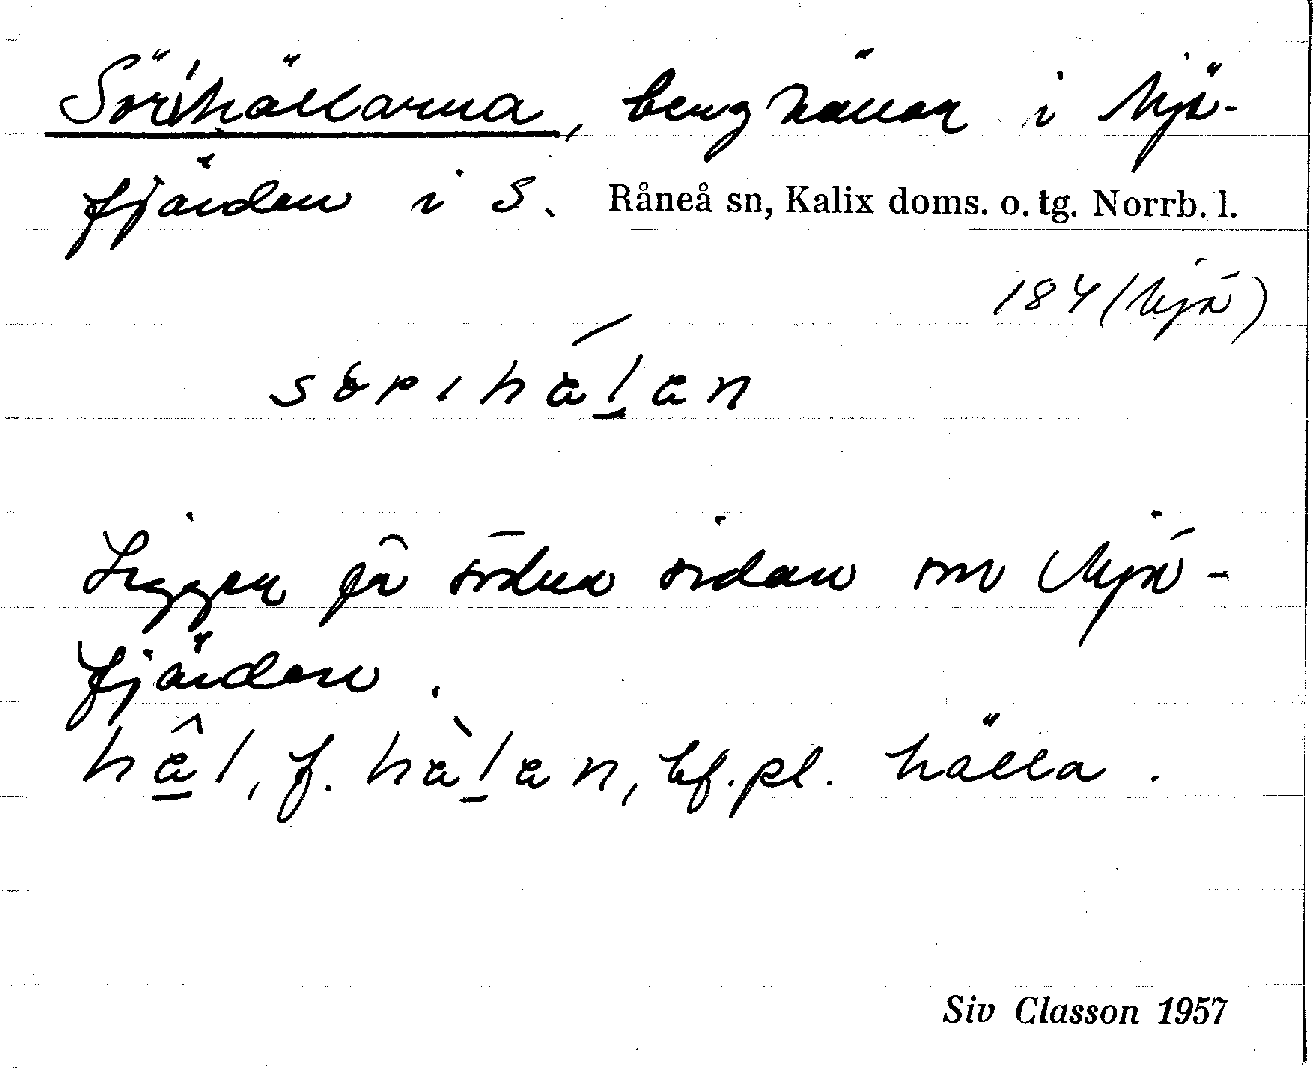 Sörihällarna, berghällar i Mjö-
fjärden i S. Råneå sn, Kalix doms. o. tg. Norrb. l.
184 (Mjö)
Ligger på södra sidan om Mjö-
fjärden.
f. bf. pl. hälla.
Siv Classon 1957